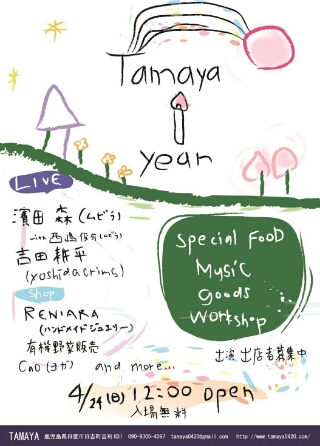 Tamaya
1
year
LIVE
濱田 森(ムビラ)
with 西嶋佑介(ムビラ)
吉田耕平
(yoshidacrims)
Shop
RENIARA
(ハンドメイドジュエリー)
有機野菜販売
CaO(ヨガ) and more...
Special FooD
MusiC
goods
workshop
出演 出店者募集中
4/29(日)12:00 open
入場無料
TAMAYA 鹿児島県日置市日吉町吉利831 090-8305-4087 tamaya0420@gmail.com http://www.tamaya0420.com/